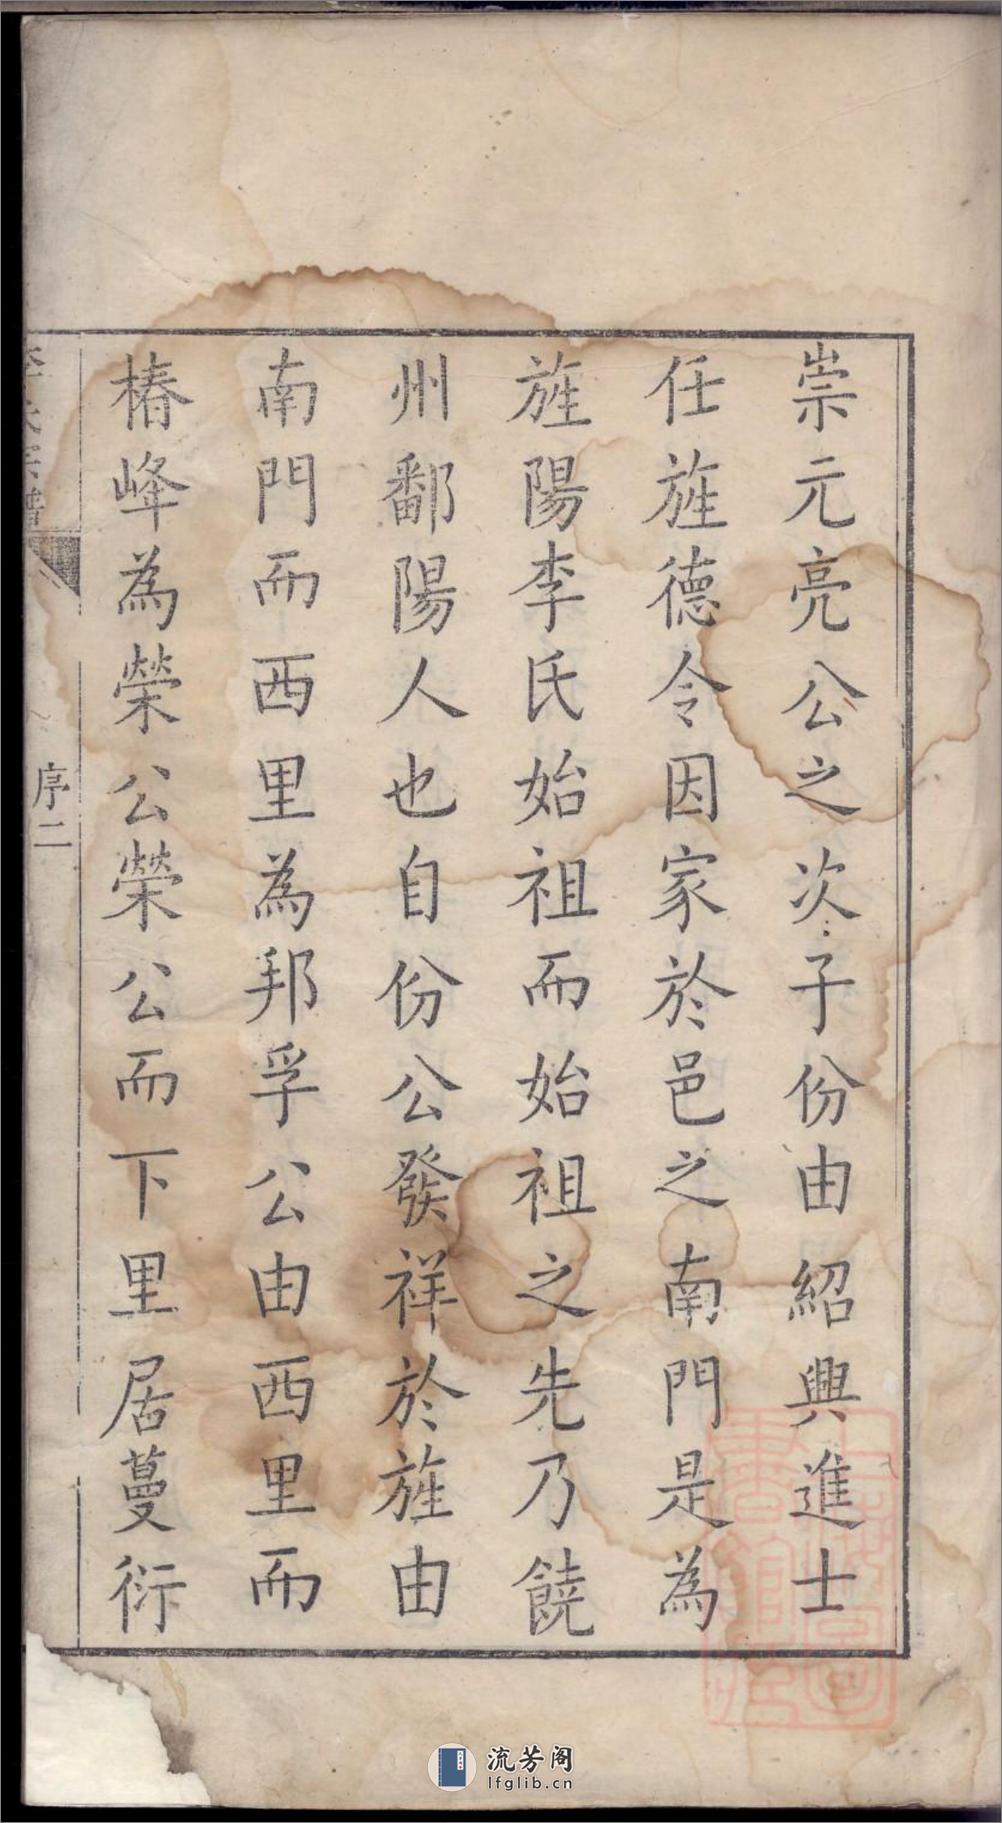 崇元亮公之次子份由紹興進士
任旌德令因家於邑之南門是為
旌陽李氏始祖而始祖之先乃饒
州鄱陽人也自份公發祥於旌由
南門而西里為邦孚公由西里而
椿峰為榮公榮公而下里居蔓衍
李氏宗譜
序二
流芳阁
lfglib.cn